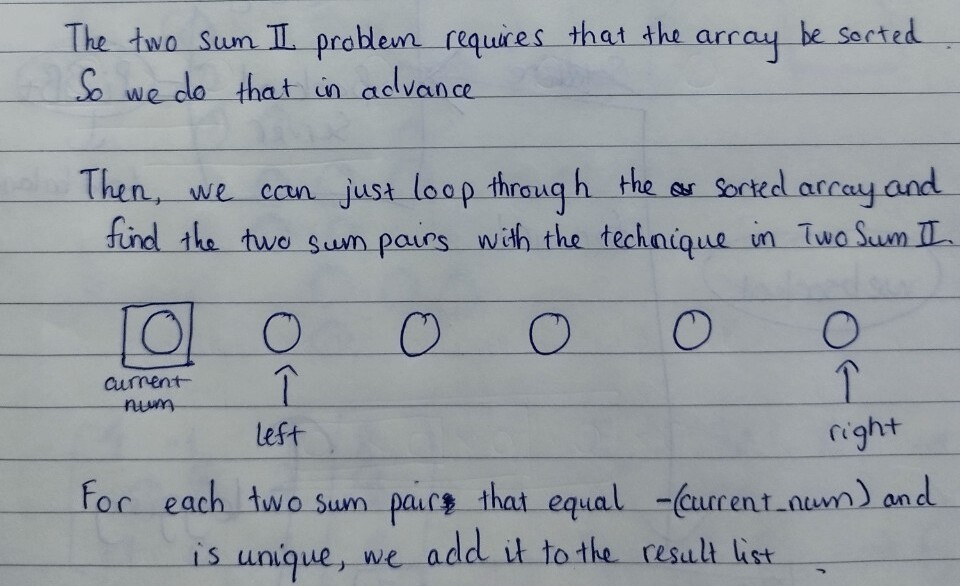 The two sum II problem requires that the array be sorted.
So we do that in advance
Then, we can just loop through the sorted array and
find the two sum pairs with the technique in Two Sum II.
current
num
left
right
For each two sum pair that equal -(current_num) and
is unique, we add it to the result list.